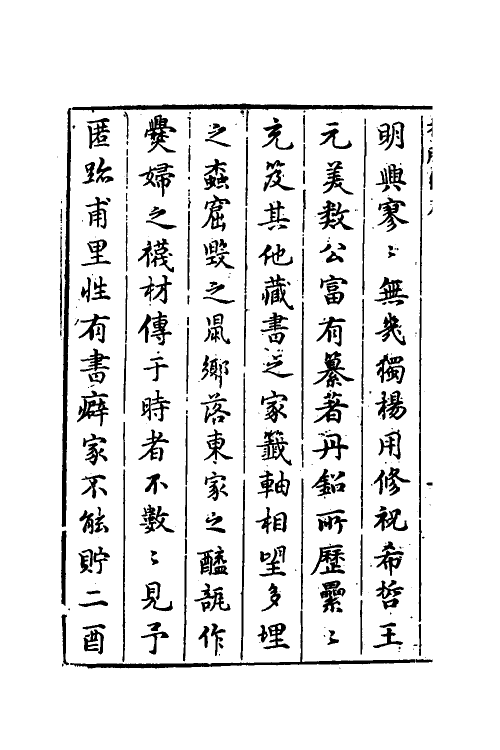 明興寥〻無幾獨楊用修祝希哲王
元美数公富有纂著丹鉛所歷纍〻
充笈其他藏書之家籤軸相望多埋
之蟲窟毀之鼠鄉落東家之醯瓿作
爨婦之襪材傳于時者不數〻見予
匿跡甫里性有書癖家不能貯二酉